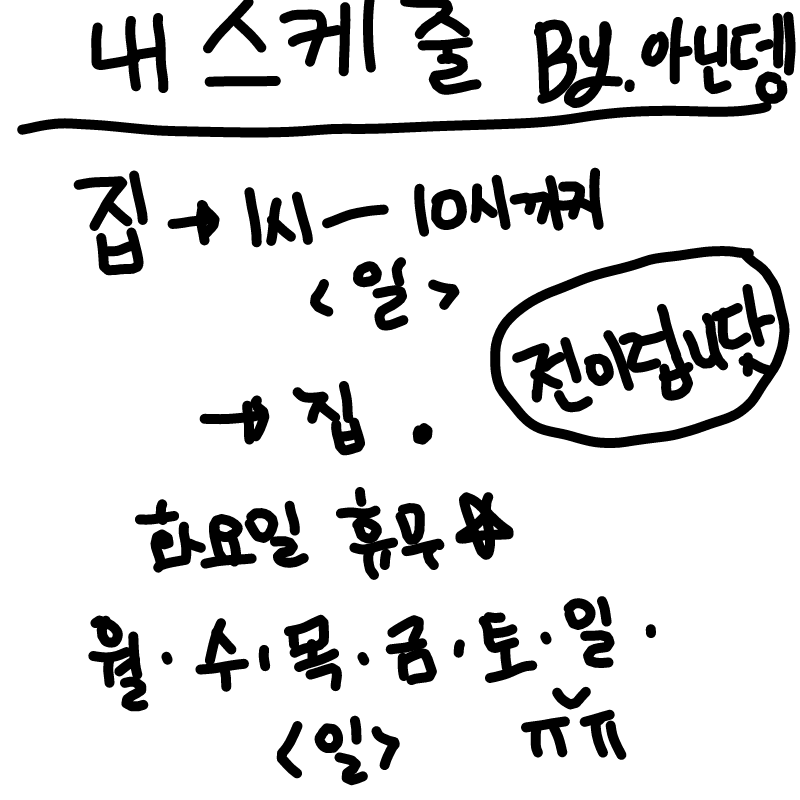 내 스케줄 By. 아닌뎅
집 → 1시 — 10시까지
<일>
전이럽니닷
→ 집 .
화요일 휴무 ☆
월 · 수 · 목 · 금 · 토 · 일 ·
<일>
ㅠ ᵕ ㅠ